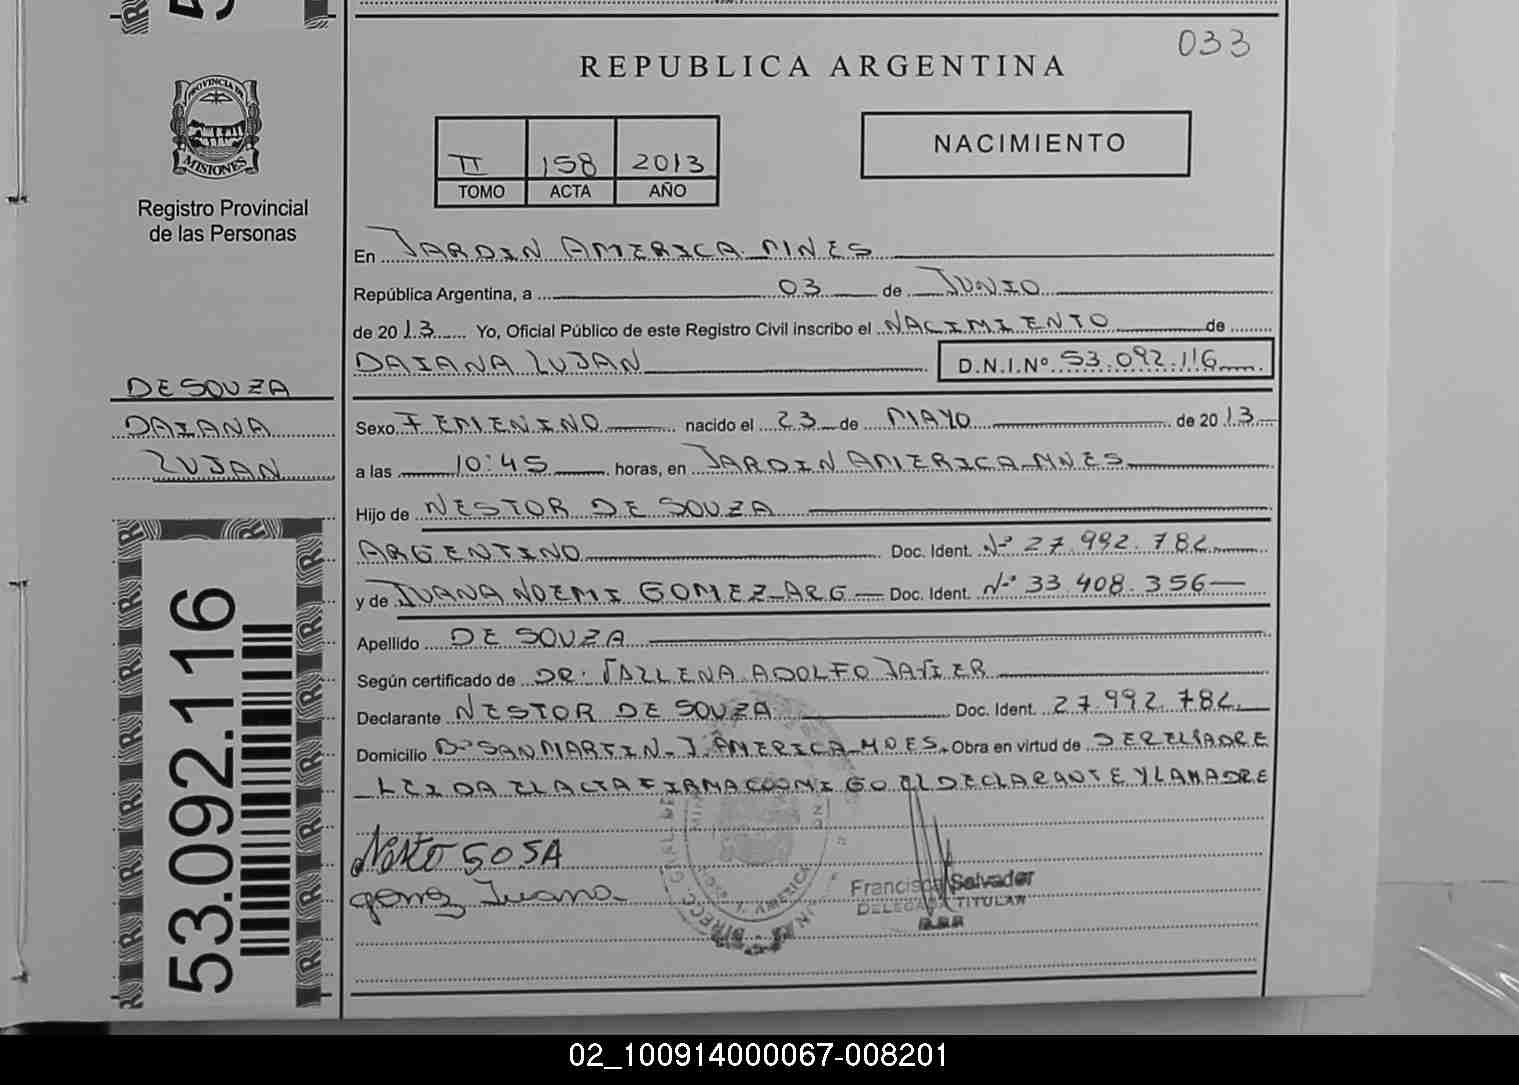 033
REPUBLICA ARGENTINA
NACIMIENTO
II 158 2013
TOMO ACTA AÑO
PROVINCIA DE
MISIONES
Registro Provincial
de las Personas
DE SOUZA
DAIANA
LUJAN
53.092.116
En JARDIN AMERICA MNES
República Argentina, a 03 de JUNIO
de 2013 Yo, Oficial Público de este Registro Civil inscribo el NACIMIENTO de
DAIANA LUJAN D.N.I.Nº 53.092.116
Sexo FEMENINO nacido el 23 de MAYO de 2013
a las 10:45 horas, en JARDIN AMERICA MNES
Hijo de NESTOR DE SOUZA
ARGENTINO Doc. Ident. Nº 27.992.782
y de JUANA NOEMI GOMEZ-ARG Doc. Ident. Nº 33.408.356
Apellido DE SOUZA
Según certificado de DR. ADOLFO JAVIER
Declarante NESTOR DE SOUZA Doc. Ident. 27.992.782
Domicilio Bº SAN MARTIN-J. AMERICA-MNES. Obra en virtud de SER EL PADRE
LEIDA EL ACTA FIRMA CONMIGO EL DECLARANTE Y LA MADRE
SOSA
Juana
Salvador
TITULAR
02_100914000067-008201